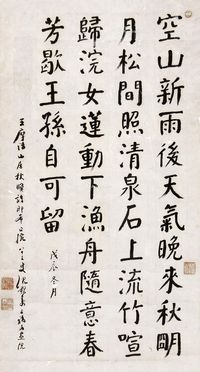 空山新雨後天氣晚來秋明
月松間照清泉石上流竹喧
歸浣女蓮動下漁舟隨意春
芳歇王孫自可留
戊辰冬月
王摩詰山居秋暝詩